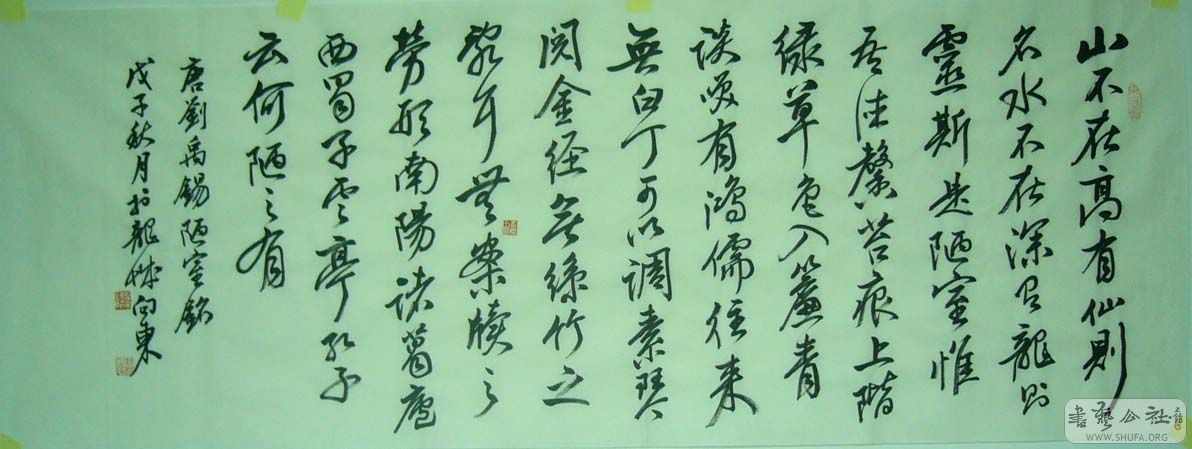 山不在高有仙則
名水不在深有龍則
靈斯是陋室惟
吾德馨苔痕上階
綠草色入簾青
談笑有鴻儒往來
無白丁可以調素琴
閱金經無絲竹之
亂耳無案牘之
勞形南陽諸葛廬
西蜀子雲亭孔子
云何陋之有
唐劉禹錫陋室銘
戊子秋月於龍城向東
書藝公社
WWW.SHUFA.ORG